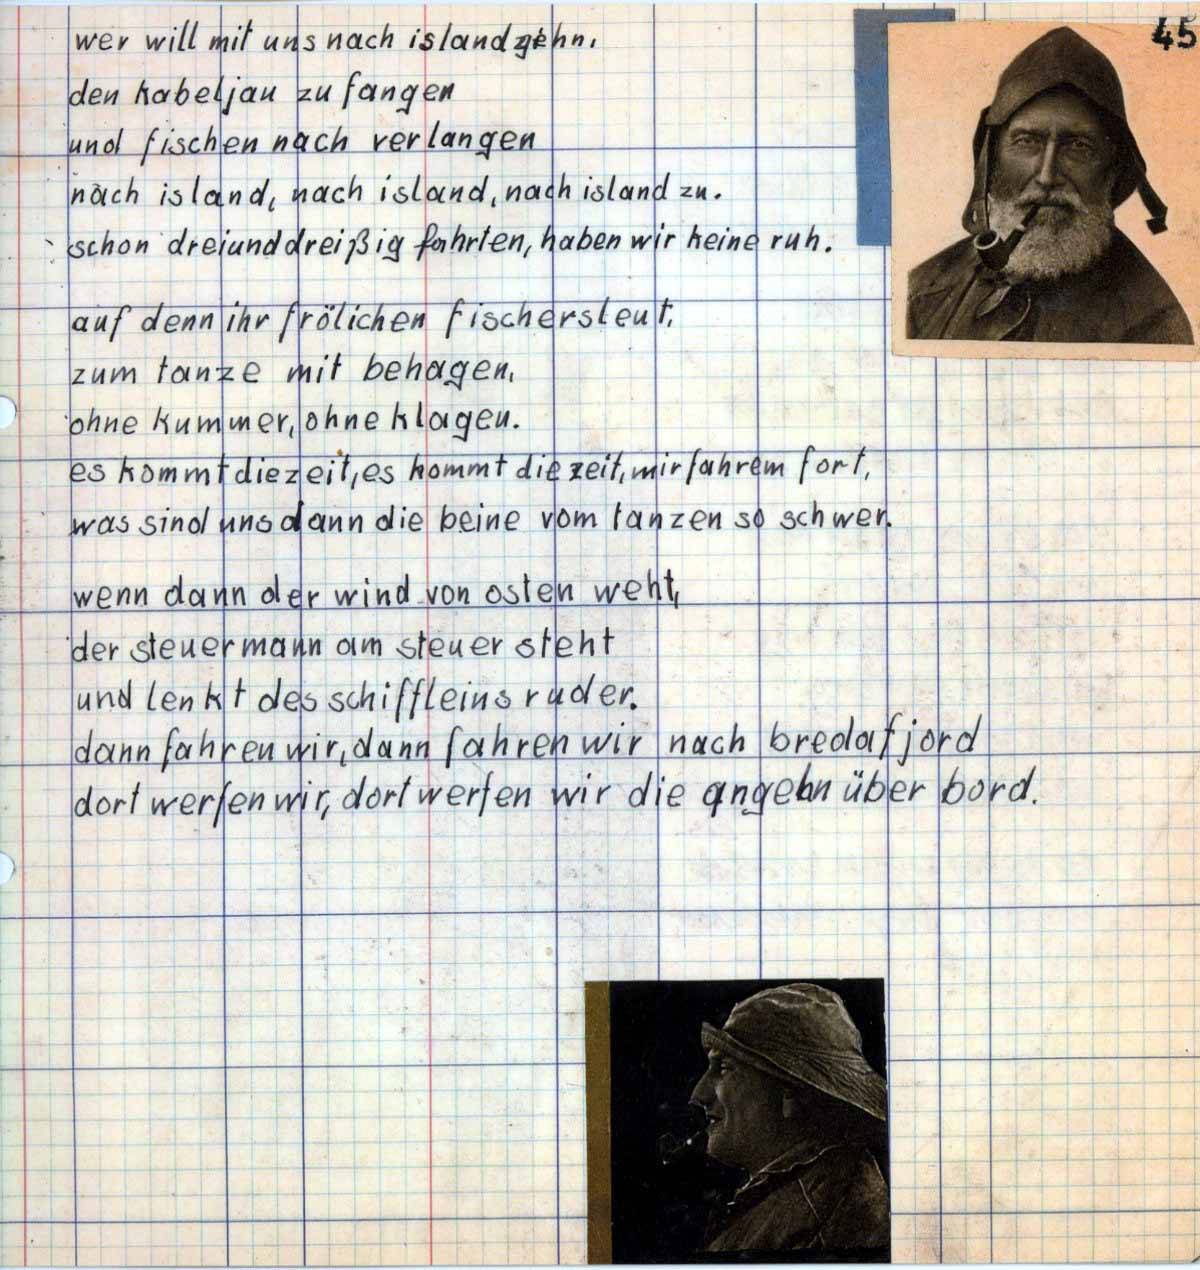 45
wer will mit uns nach island gehn,
den kabeljau zu fangen
und fischen nach verlangen
nach island, nach island, nach island zu.
schon dreiunddreißig fahrten, haben wir keine ruh.
auf denn ihr frölichen fischersleut,
zum tanze mit behagen,
ohne kummer, ohne klagen.
es kommt die zeit, es kommt die zeit, mir fahrem fort,
was sind uns dann die beine vom tanzen so schwer.
wenn dann der wind von osten weht,
der steuermann am steuer steht
und lenkt des schiffleins ruder.
dann fahren wir, dann fahren wir nach bredafjord
dort werfen wir, dort werfen wir die angeln über bord.